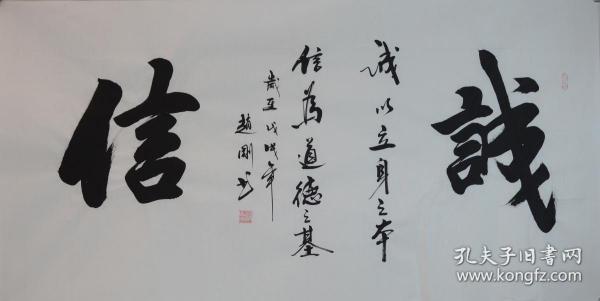 誠
诚以立身之本
信為道德之基
歲在戊戌年
趙剛书
信
孔夫子旧书网
www.kongfz.com